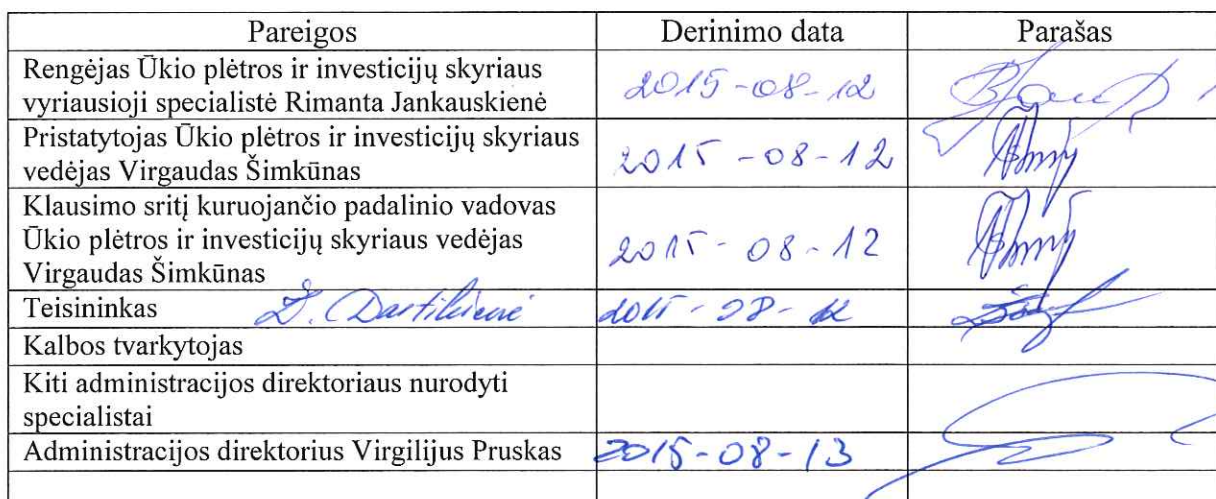 Pareigos Derinimo data Parašas
Rengėjas Ūkio plėtros ir investicijų skyriaus
vyriausioji specialistė Rimanta Jankauskienė 2015-08-12
Pristatytojas Ūkio plėtros ir investicijų skyriaus
vedėjas Virgaudas Šimkūnas 2015-08-12
Klausimo sritį kuruojančio padalinio vadovas
Ūkio plėtros ir investicijų skyriaus vedėjas
Virgaudas Šimkūnas 2015-08-12
Teisininkas 2015-08-12
Kalbos tvarkytojas
Kiti administracijos direktoriaus nurodyti
specialistai
Administracijos direktorius Virgilijus Pruskas 2015-08-13